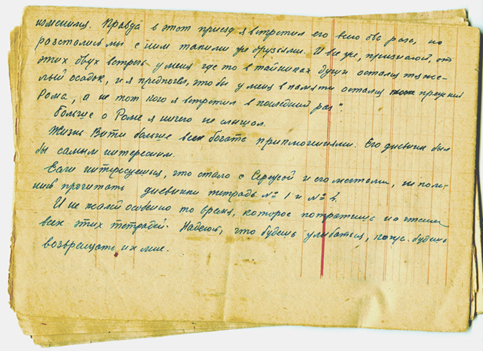 кишишил. Правда в этот приезд я встретил его всего два раза, но
расстались мы с ним такими же друзьями. И все же, признаюсь, от
этих двух встреч у меня где то в тайниках души остался тяже-
лый осадок, и я предпочел, чтобы у меня в памяти остался прежний
Рома, а не тот кого я встретил в последний раз."
Больше о Роме я ничего не слышал.
Жизнь Вити больше всех богата приключениями. Его дневник был
бы самым интересным.
Если интересуешься, что стало с Сережей и его мечтами, не поле-
нись прочитать дневники тетрадь № 1 и № 4.
И не жалей особенно то время, которое потратишь на чтение
всех этих тетрадей. Надеюсь, что будешь улыбаться, когда будешь
возвращать их мне.